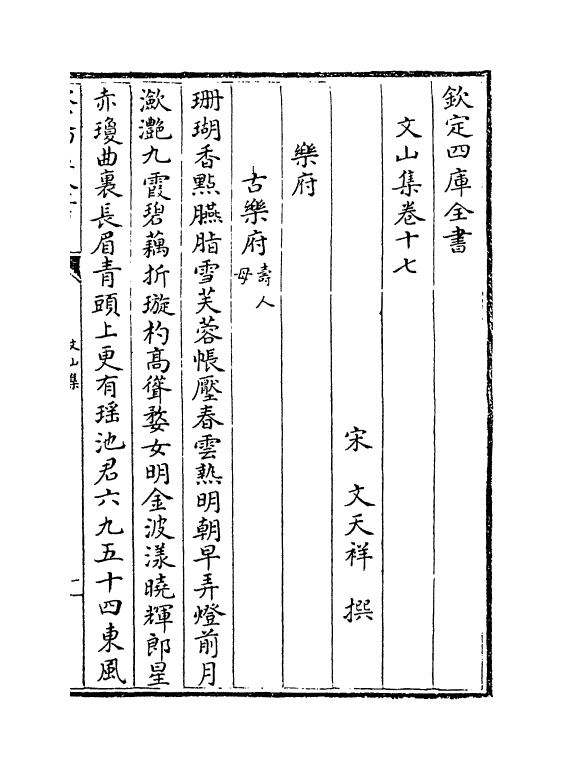 欽定四庫全書
文山集卷十七
宋 文天祥 撰
樂府
古樂府壽人母
珊瑚香點臙脂雪芙蓉帳壓春雲熱明朝早弄燈前月
瀲灩九霞碧藕折璇杓高聳婺女明金波漾曉輝郎星
赤瓊曲裏長眉青頭上更有瑶池君六九五十四東風
文山集